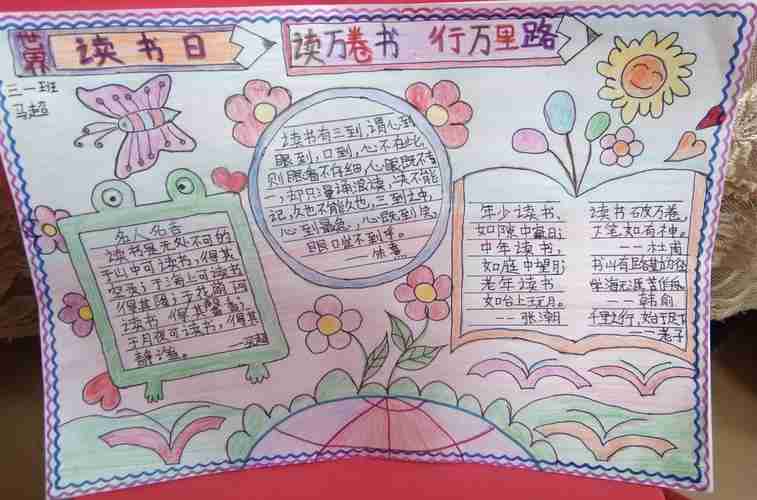 世界读书日
读万卷书 行万里路
三一班
马超
名人名言
读书是无处不可的
于山中可读书,得其
空灵;于海上可读书
得其
读书,得其馨香;
于月夜可读书,得其
静谧。
读书有三到,谓心到
眼到,口到,心不在此
则眼看不仔细,心眼既不专
一,却只漫诵浪读,决不能
记,久也不能久也,三到之中,
心到最急,心既到矣,
眼口岂不到乎。
——朱熹
年少读书,
如隙中窥日;
中年读书,
如庭中望月;
老年读书
如台上玩月。
——张潮
读书破万卷,
下笔如有神。
——杜甫
书山有路勤为径
学海无涯苦作舟
——韩俞
千里之行,始于足下
——老子